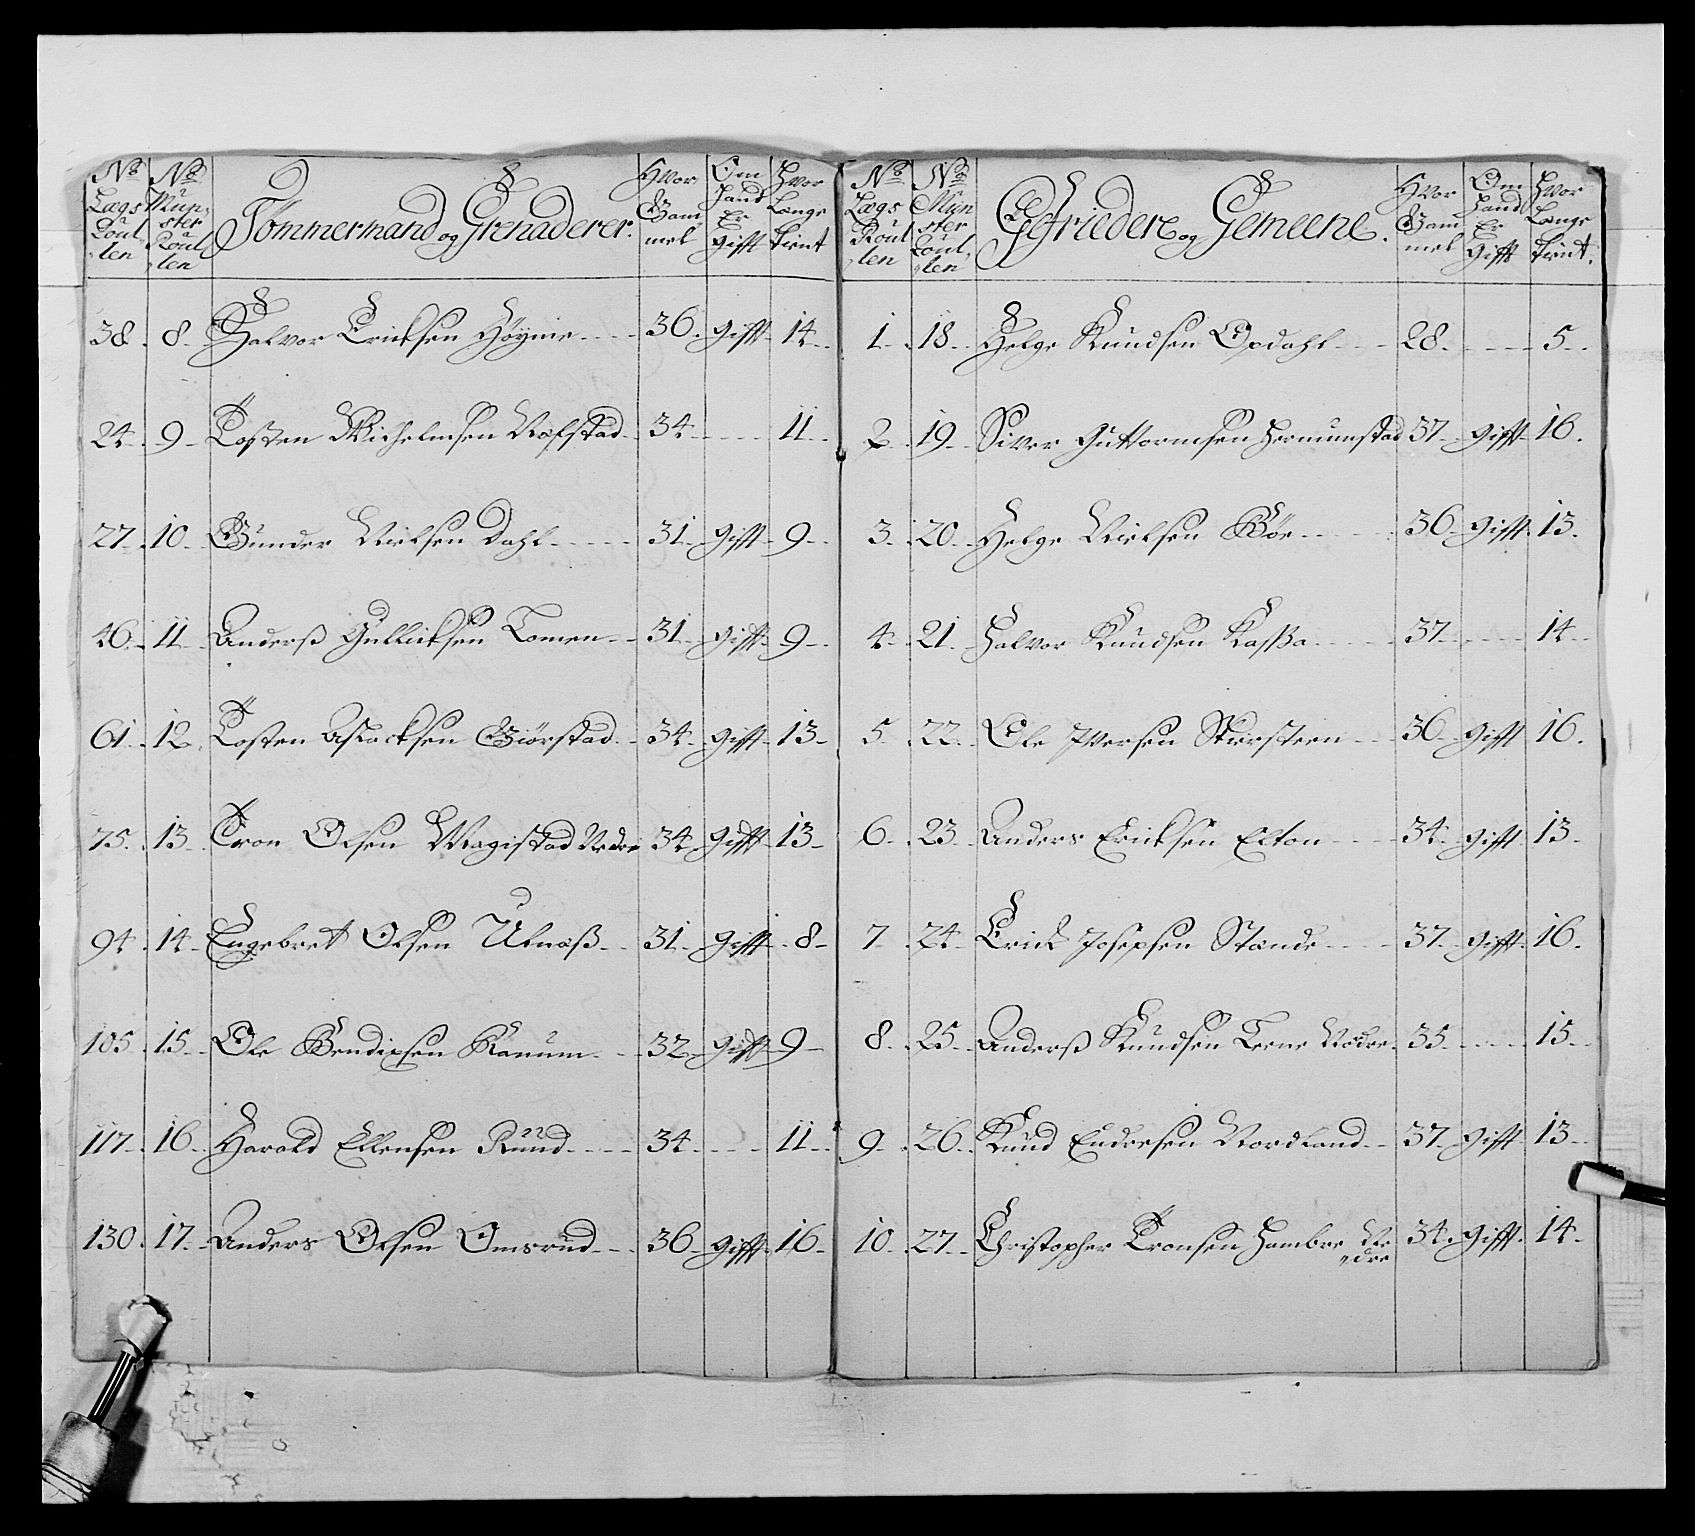 No Lægs Roullen | No Mynster Roullen | Tömmermænd og Grenaderer. | Hvor Gammel | Om Hand Er Gifft | Hvor Længe tient
38. 8. Halvor Ericksen Höynie 36. gifft 14.
24. 9. Tosten Wilhelmsen Rafstad 34. 11.
27. 10. Gunder Nielsen Dahl 31. gifft 9.
46. 11. Anderß Gullicksen Tomen 31. gifft 9.
61. 12. Tosten Aslacksen Giörstad 34. gifft 13.
75. 13. Tron Olsen Magistad Nedre 34. gifft 13.
94. 14. Engebret Olsen Ulnæß 31. gifft 8.
105. 15. Ole Bendixsen Ranum 32. gifft 9.
117. 16. Harald Ellensen Ruud 34. 11.
130. 17. Anders Olsen Omsrud 36. gifft 16.
No Lægs Roullen | No Mynster Roullen | Gefriedere og Gemeene. | Hvor Gammel | Om Hand Er Gifft | Hvor Længe tient.
1. 18. Helge Knudsen Opdahl 28. 5.
2. 19. Siver Guttormsen Hermunstad 37. gifft 16.
3. 20. Helge Nielsen Böe 36. gifft 13.
4. 21. Halvor Knudsen Kaßa 37. 14.
5. 22. Ole Iversen 36. gifft 16.
6. 23. Anders Ericksen Elton 34. gifft 13.
7. 24. Erick Josepsen Stande 37. gifft 16.
8. 25. Anderß Knudsen Lerne Nedre 35. 15.
9. 26. Knud Endresen Nordland 37. gifft 13.
10. 27. Christopher Tronsen Hambre Nedre 34. gifft 14.